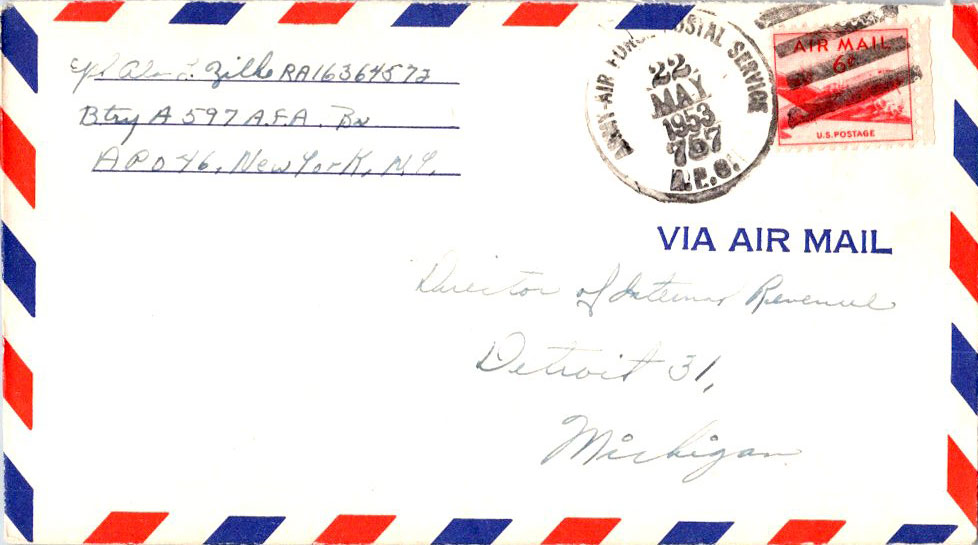 Cpl Alan L. Zilke RA16364572
Btry A 597 A.F.A. Bn
APO 46, New York, N.Y.
ARMY-AIR FORCE POSTAL SERVICE
22
MAY
1953
757
A.P.O.
AIR MAIL
6¢
U.S. POSTAGE
VIA AIR MAIL
Director of Internal Revenue
Detroit 31,
Michigan